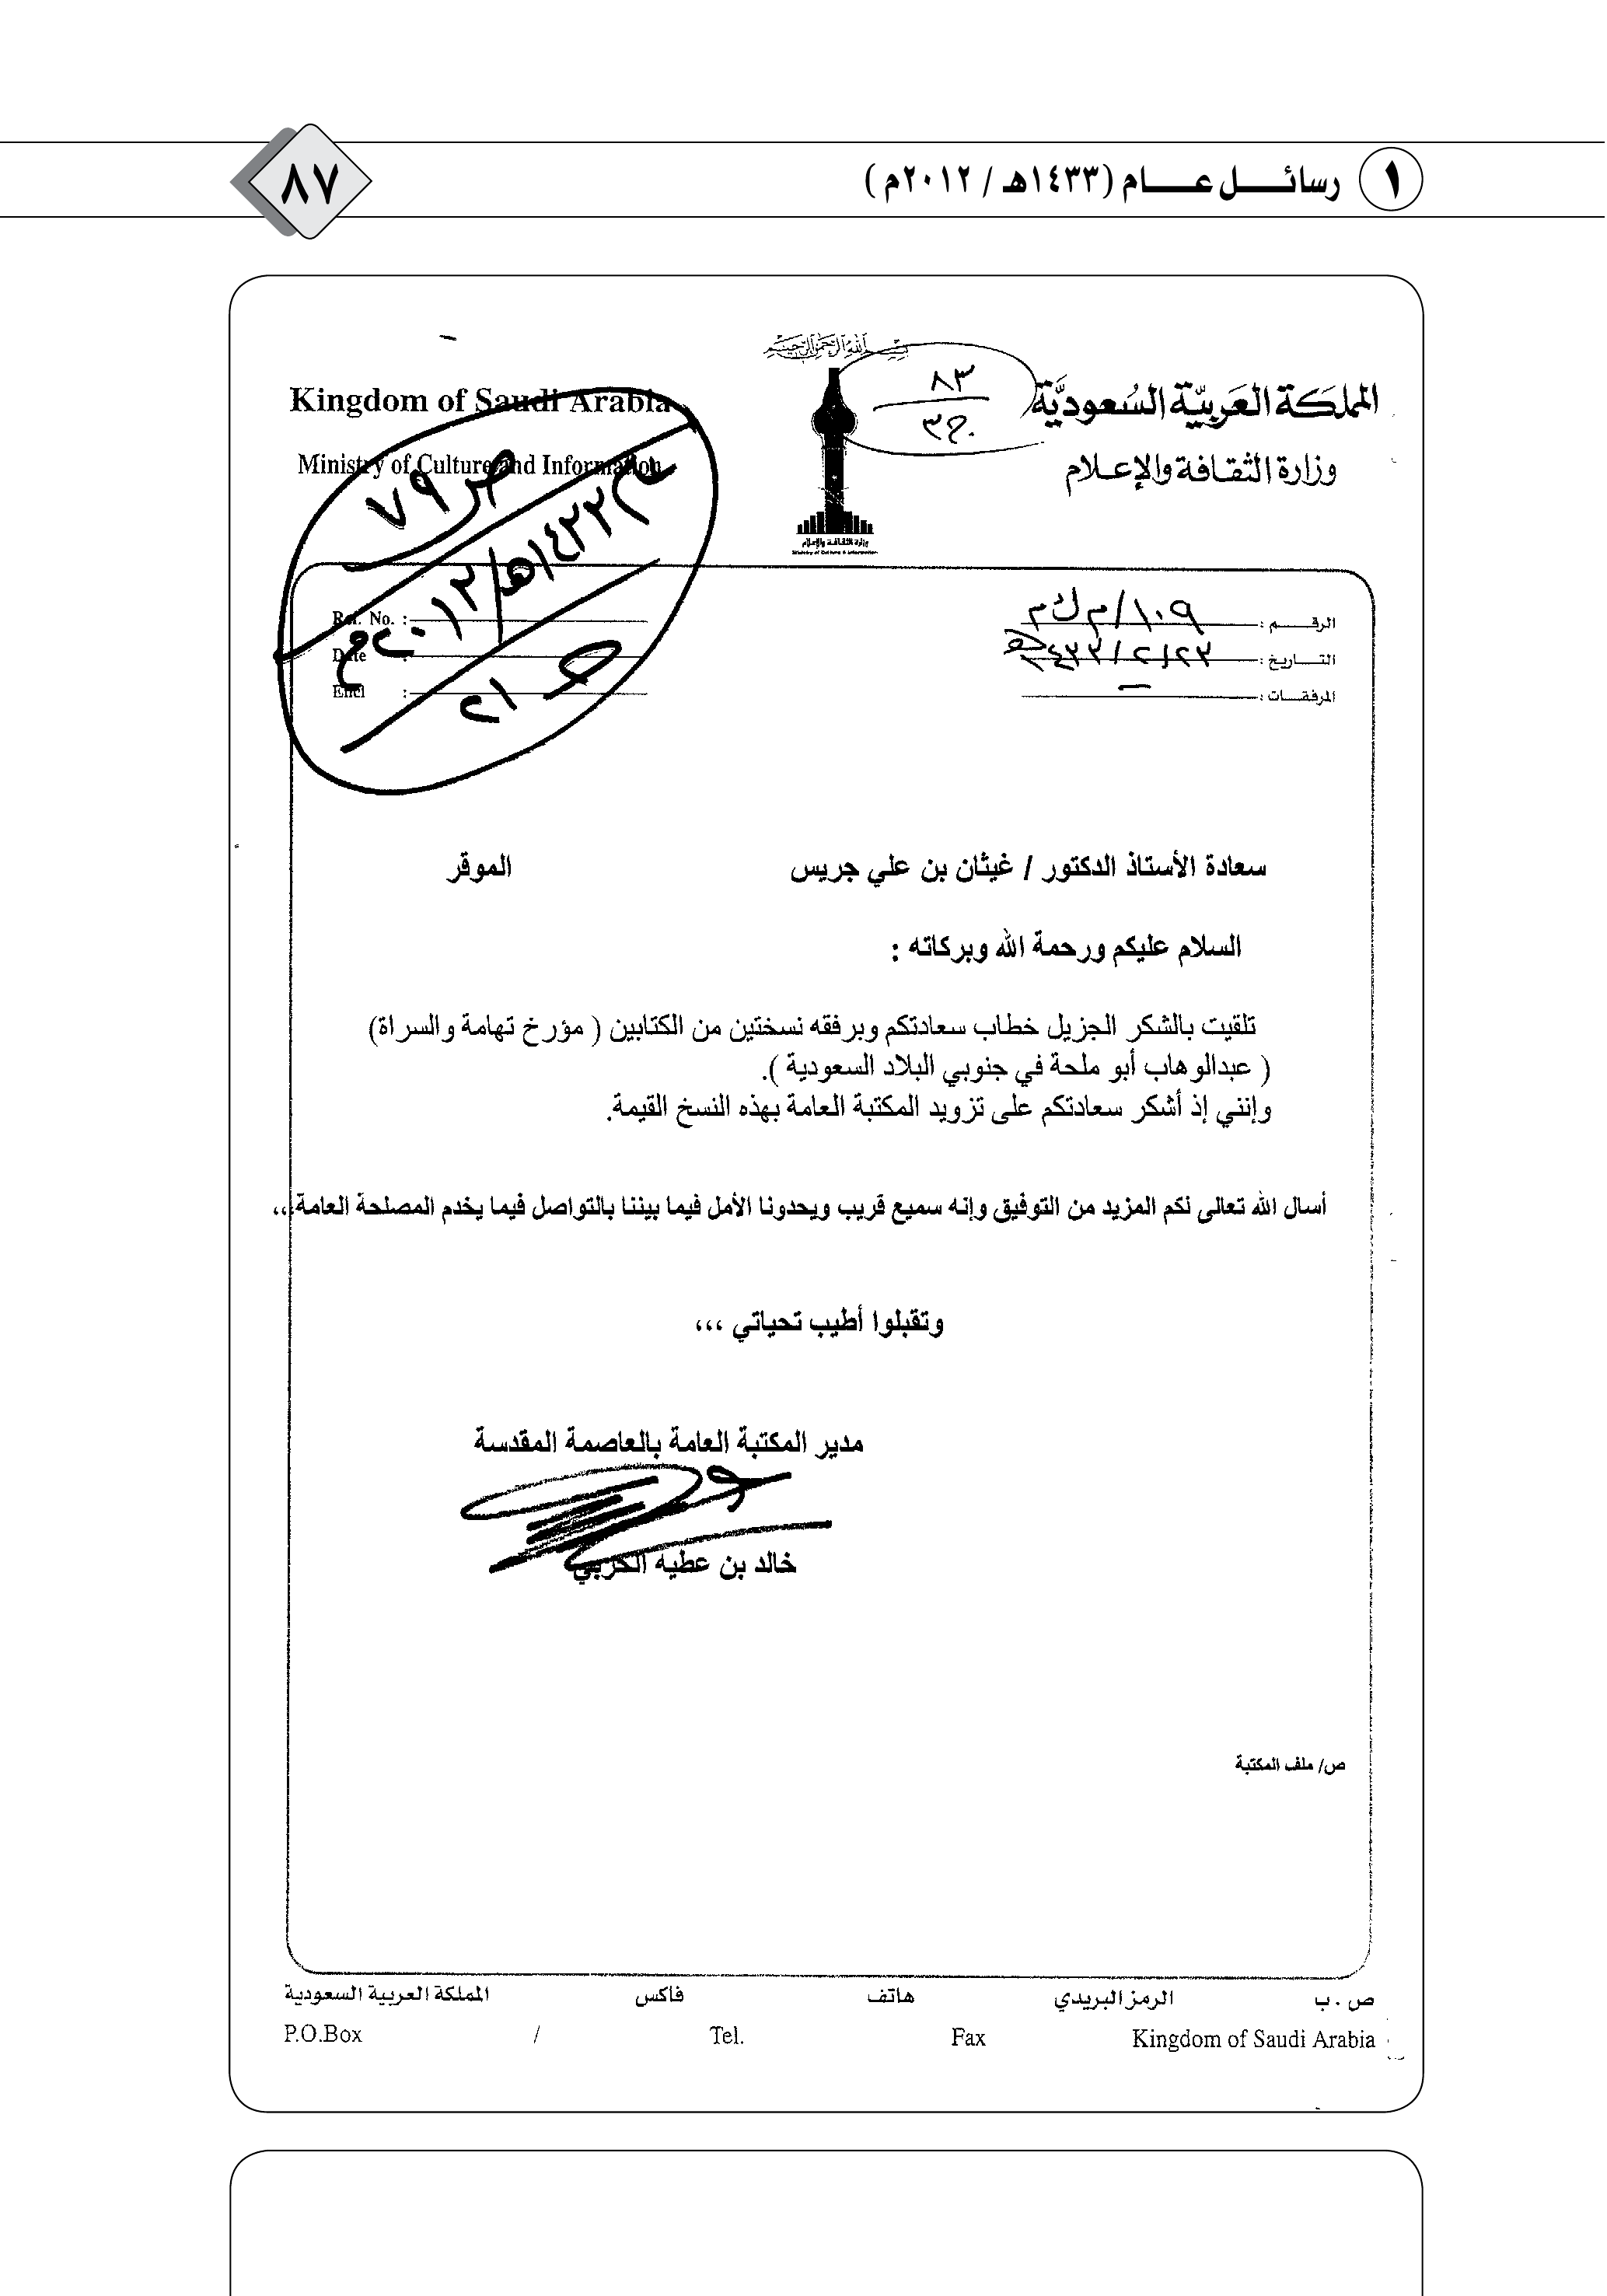 ١ رسائل عام (١٤٣٣هـ / ٢٠١٢م)
٨٧
بسم الله الرحمن الرحيم
المملكة العربية السعودية
وزارة الثقافة والإعلام
Kingdom of Saudi Arabia
Ministry of Culture and Information
٨٣
ج٣
وزارة الثقافة والإعلام
Ministry of Culture & Information
ص ٧٩
عام ١٤٣٣هـ/٢٠١٢م
ج ٢١
الرقم : ١٠٩/م ك م
التاريخ : ١٤٣٣/٢/٢٣هـ
المرفقات : –
Ref. No. :
Date :
Encl :
سعادة الأستاذ الدكتور / غيثان بن علي جريس الموقر
السلام عليكم ورحمة الله وبركاته :
تلقيت بالشكر الجزيل خطاب سعادتكم وبرفقه نسختين من الكتابين ( مؤرخ تهامة والسراة)
( عبدالوهاب أبو ملحة في جنوبي البلاد السعودية ).
وإنني إذ أشكر سعادتكم على تزويد المكتبة العامة بهذه النسخ القيمة.
أسال الله تعالى لكم المزيد من التوفيق وإنه سميع قريب ويحدونا الأمل فيما بيننا بالتواصل فيما يخدم المصلحة العامة،،،
وتقبلوا أطيب تحياتي ،،،
مدير المكتبة العامة بالعاصمة المقدسة
خالد بن عطيه الحربي
ص/ ملف المكتبة
ص . ب الرمز البريدي هاتف فاكس المملكة العربية السعودية
P.O.Box / Tel. Fax Kingdom of Saudi Arabia